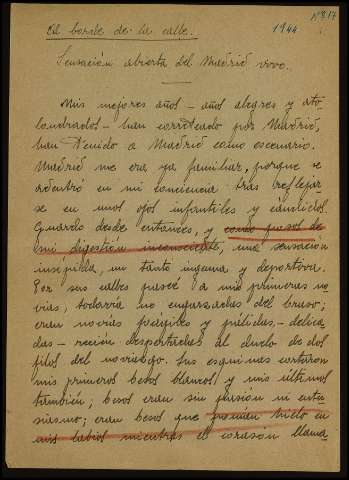 Nº 817
Al borde de la calle.
1944
Sensación abierta del Madrid vivo.
Mis mejores años - años alegres y ato-
londrados - han correteado por Madrid,
han tenido a Madrid como escenario.
Madrid me era ya familiar, porque se
adentró en mi conciencia tras reflejar-
se en unos ojos infantiles y cándidos.
Guardo desde entonces, y como posos de
mi digestión inconsciente, una sensación
insípida, un tanto ingenua y deportiva.
Por sus calles paseé a mis primeras no-
vias, todavía no enganzadas del brazo;
eran novias frágiles y pálidas - delica-
das - recién despertadas al duelo de dos
filos del noviazgo. Sus esquinas cortaron
mis primeros besos blancos y mis últimos
también; besos eran sin pasión ni entu-
siasmo; eran besos que ponían hielo en
mis labios mientras el corazón llama